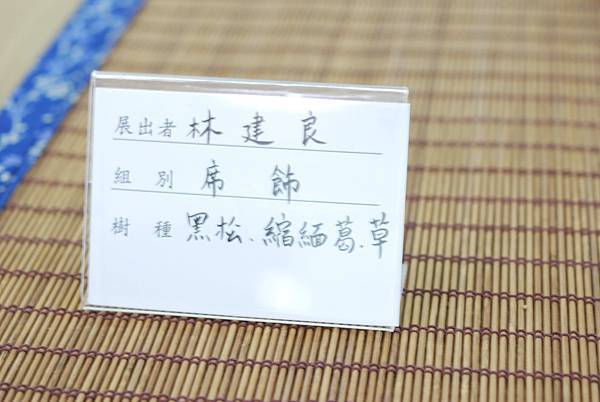 展出者 林建良
組別 席飾
樹種 黑松、縮緬葛、草